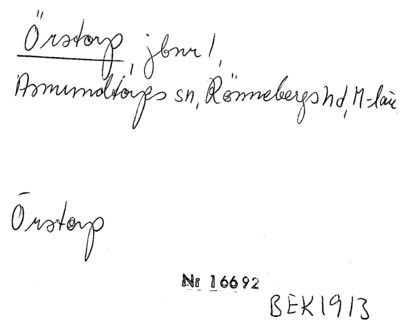 Örstorp, jbnr 1,
Asmundtorps sn, Rönnebergs hd, M-län
Örstorp
Nr 16692
BEK1913